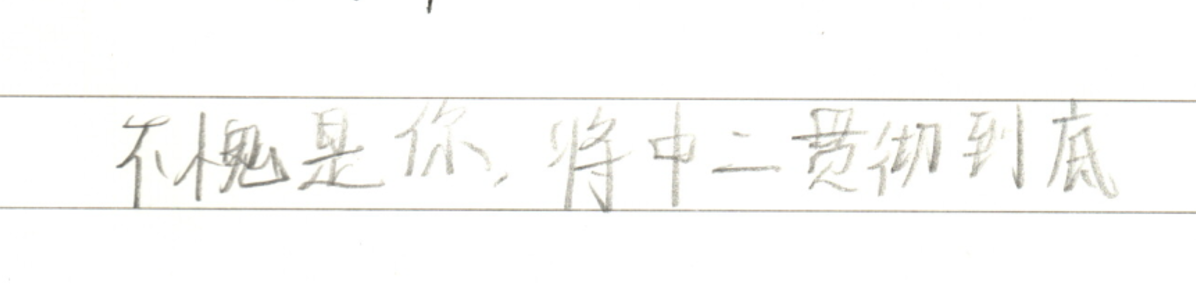 不愧是你，将中二贯彻到底